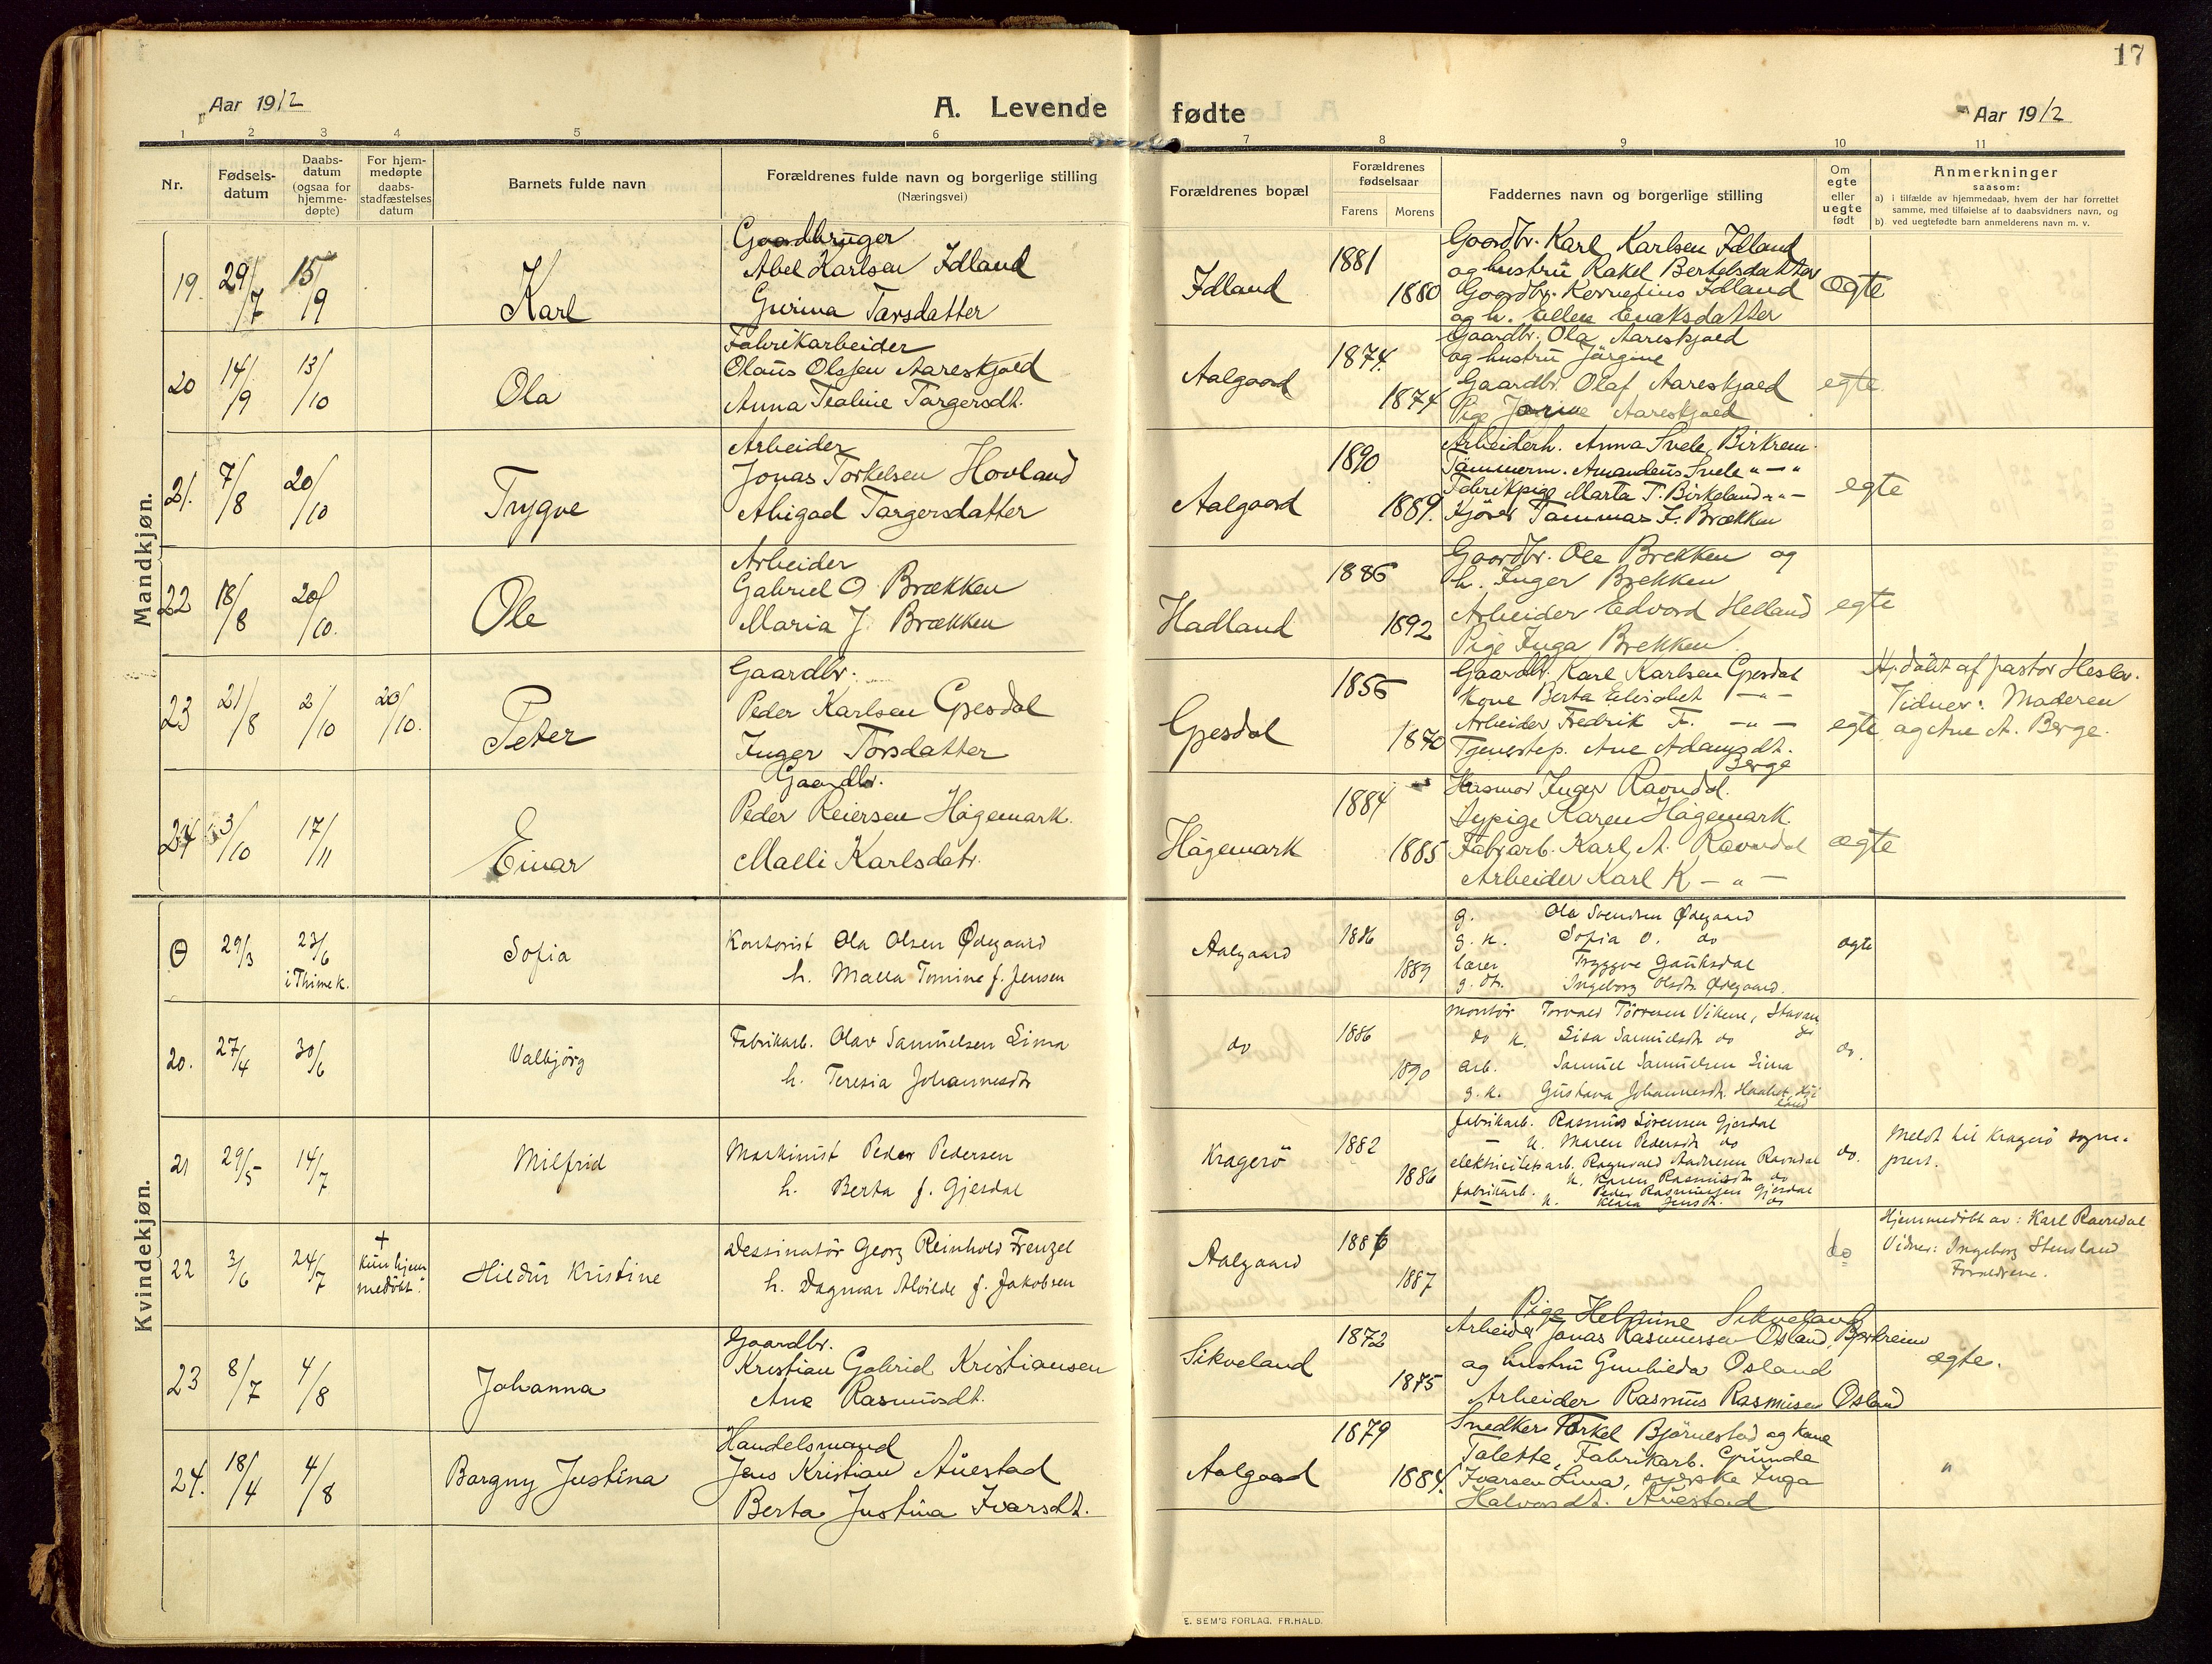 17
Aar 1912
A. Levende
fødte
Aar 1912
1 2 3 4 5 6 7 8 9 10 11
Nr.
Fødsels-
datum
Daabs-
datum
(ogsaa for
hjemme-
døpte)
For hjem-
medøpte
daabs-
stadfæstelses
datum
Barnets fulde navn
Forældrenes fulde navn og borgerlige stilling
(Næringsvei)
Forældrenes bopæl
Forældrenes
fødselsaar
Farens Morens
Faddernes navn og borgerlige stilling
Om
egte
eller
uegte
født
Anmerkninger
saasom:
a) i tilfælde av hjemmedaab, hvem der har forrettet
samme, med tilføielse af to daabsvidners navn, og
b) ved uegtefødte barn anmelderens navn m. v.
Mandkjøn.
19. 29/7 15/9 Karl
Gaardbruger
Abel Karlsen Idland
Gurina Tarsdatter
Idland 1881 1880
Gaardbr. Karl Karlsen Idland
og hustru Rakel Bertelsdatter
Gaardbr. Kornelius Idland
og h. Ellen Enoksdatter
egte
20 14/9 13/10 Ola
Fabrikarbeider
Olaus Olssen Aareskjold
Anna Tealine Targersdt.
Aalgaard 1874. 1874
Gaardbr. Ola Aareskjold
og hustru Jørgine
Gaardbr. Olaf Aareskjold
Pige Aareskjold
egte
21. 7/8 20/10 Trygve
Arbeider
Jonas Torkelsen Hovland
Abigael Targersdatter
Aalgaard 1890 1889.
Arbeiderh. Anna Svele, Birkrem.
Tømmerm. Amandeus Svele " — "
Fabrikpige Marta T. Birkeland " " —
Kjører Tammas T. Brækken
egte
22 18/8 20/10. Ole
Arbeider
Gabriel O. Brækken
Maria J. Brækken
Hadland 1886 1892
Gaardbr. Ole Brekken og
h. Inger Brekken
Arbeider Edvard Helland
Pige Inga Brekken
egte
23 21/8 2/10 20/10. Peter
Gaardbr.
Peder Karlsen Gjesdal
Inger Torsdatter
Gjesdal 1856 1870
Gaardbr. Karl Karlsen Gjesdal
Kone Berta Elisabet — " —
Arbeider Fredrik F. — " —
Tjenestep. Ane Adamsdt.
Berge
egte
Hj.døbt af pastor Hesla.
Vidner: Moderen
og Ane A. Berge.
24 3/10 17/11 Einar
Gaardbr.
Peder Reiersen Hagemark.
Malli Karlsdatr.
Hagemark 1884 1885
Husmor Inger Ravndal.
Sypige Karen Hagemark.
Fabrarb. Karl A. Ravndal
Arbeider Karl K — " —
egte
Kvindekjøn.
29/3 23/6
i Thime k. Sofia
Kontorist Ola Olsen Ødegaard
h. Malla Tomine f. Jensen
Aalgaard 1886 1889
g. Ola Svendsen Ødegaard
g. k. Sofia O. do
lærer Tryggve Gauksdal
g. dtr. Ingeborg Olsdtr. Ødegaard.
egte
20. 27/4 30/6 Valbjørg
Fabrikarb. Olav Samuelsen Lima
h. Teresia Johannesdtr
do 1886 1890
montør Torvald Tørresen Vikene, Stavan
do k. Lisa Samuelsdtr do ger
arb. Samuel Samuelsen Lima
g. k. Gustava Johannesdtr. Haaland,
do.
21 29/5 14/7 Milfrid
Maskinist Peder Pedersen
h. Berta f. Gjesdal
Kragerö 1882 1886
fabrikarb. Rasmus Sørensen Gjesdal
— k. Maren Pedersdtr do
elektricitetsarb. Ragnvald Andresen Ravndal
k. Karen Rasmusdtr do
fabrikarb. Peder Rasmussen Gjesdal
— k. Klara Jensdt. do
do.
Meldt til Kragerö sogne-
prest.
22 3/6 24/7 †
Kun hjem
medøbt. Hildur Kristine
Dessinatör Georg Reinhold Frenzel
h. Dagmar Alvilde f. Jakobsen
Aalgaard 1886 1887
do
Hjemmedøbt av: Karl Ravndal
Vidner: Ingeborg Stensland
Forældrene.
23 8/7 4/8 Johanna
Gaardbr.
Kristian Gabriel Kristiansen
Ane Rasmusdt.
Sikveland 1872 1875
Pige Helgine Sikveland
Arbeider Jonas Rasmussen Osland, Bjerkreim
og hustru Gunhilda Osland
Arbeider Rasmus Rasmusen Osland
egte.
24. 18/4 4/8 Borgny Justina
Handelsmand
Jens Kristian Auestad
Berta Justina Ivarsdt.
Aalgaad 1879 1884.
Snedker Torkel Bjørnestad og kone
Talette, Fabrikarb. Gunda
Ivarsen Lima, syerske Inga
Halvorsdt. Auestad
"
E. SEM'S FORLAG. FR.HALD.